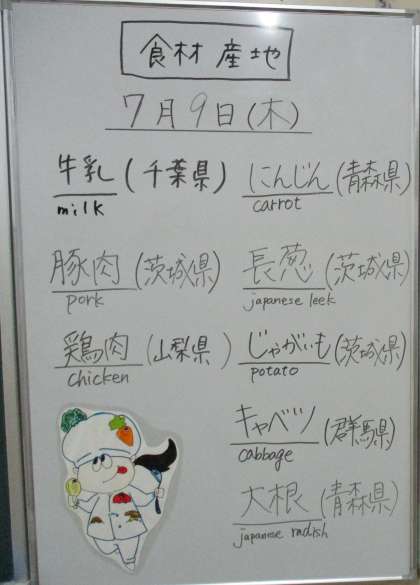 食材 産地
7月9日(木)
牛乳(千葉県)
milk
豚肉(茨城県)
pork
鶏肉(山梨県)
chicken
にんじん(青森県)
carrot
長葱(茨城県)
japanese leek
じゃがいも(茨城県)
potato
キャベツ(群馬県)
cabbage
大根(青森県)
japanese radish